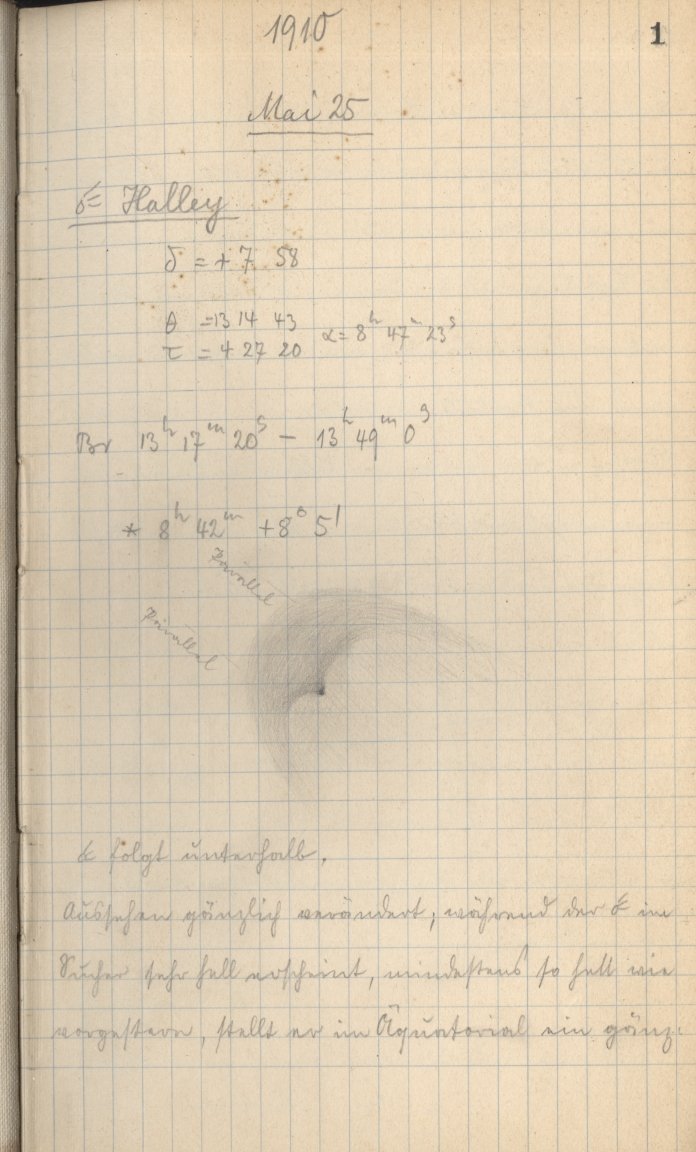 1910
1
Mai 25
☄ Halley
δ = + 7 58
θ = 13 14 43
α = 8ʰ 47ᵐ 23ˢ
τ = 4 27 20
Br 13ʰ 17ᵐ 20ˢ — 13ʰ 49ᵐ 0ˢ
* 8ʰ 42ᵐ +8° 5'
Parallel
Parallel
☄ folgt unterhalb.
Aussehen gänzlich verändert; während der ☄ im
Sucher sehr hell erscheint, mindestens so hell wie
vorgestern, stellt er im Äquatorial ein gänz-